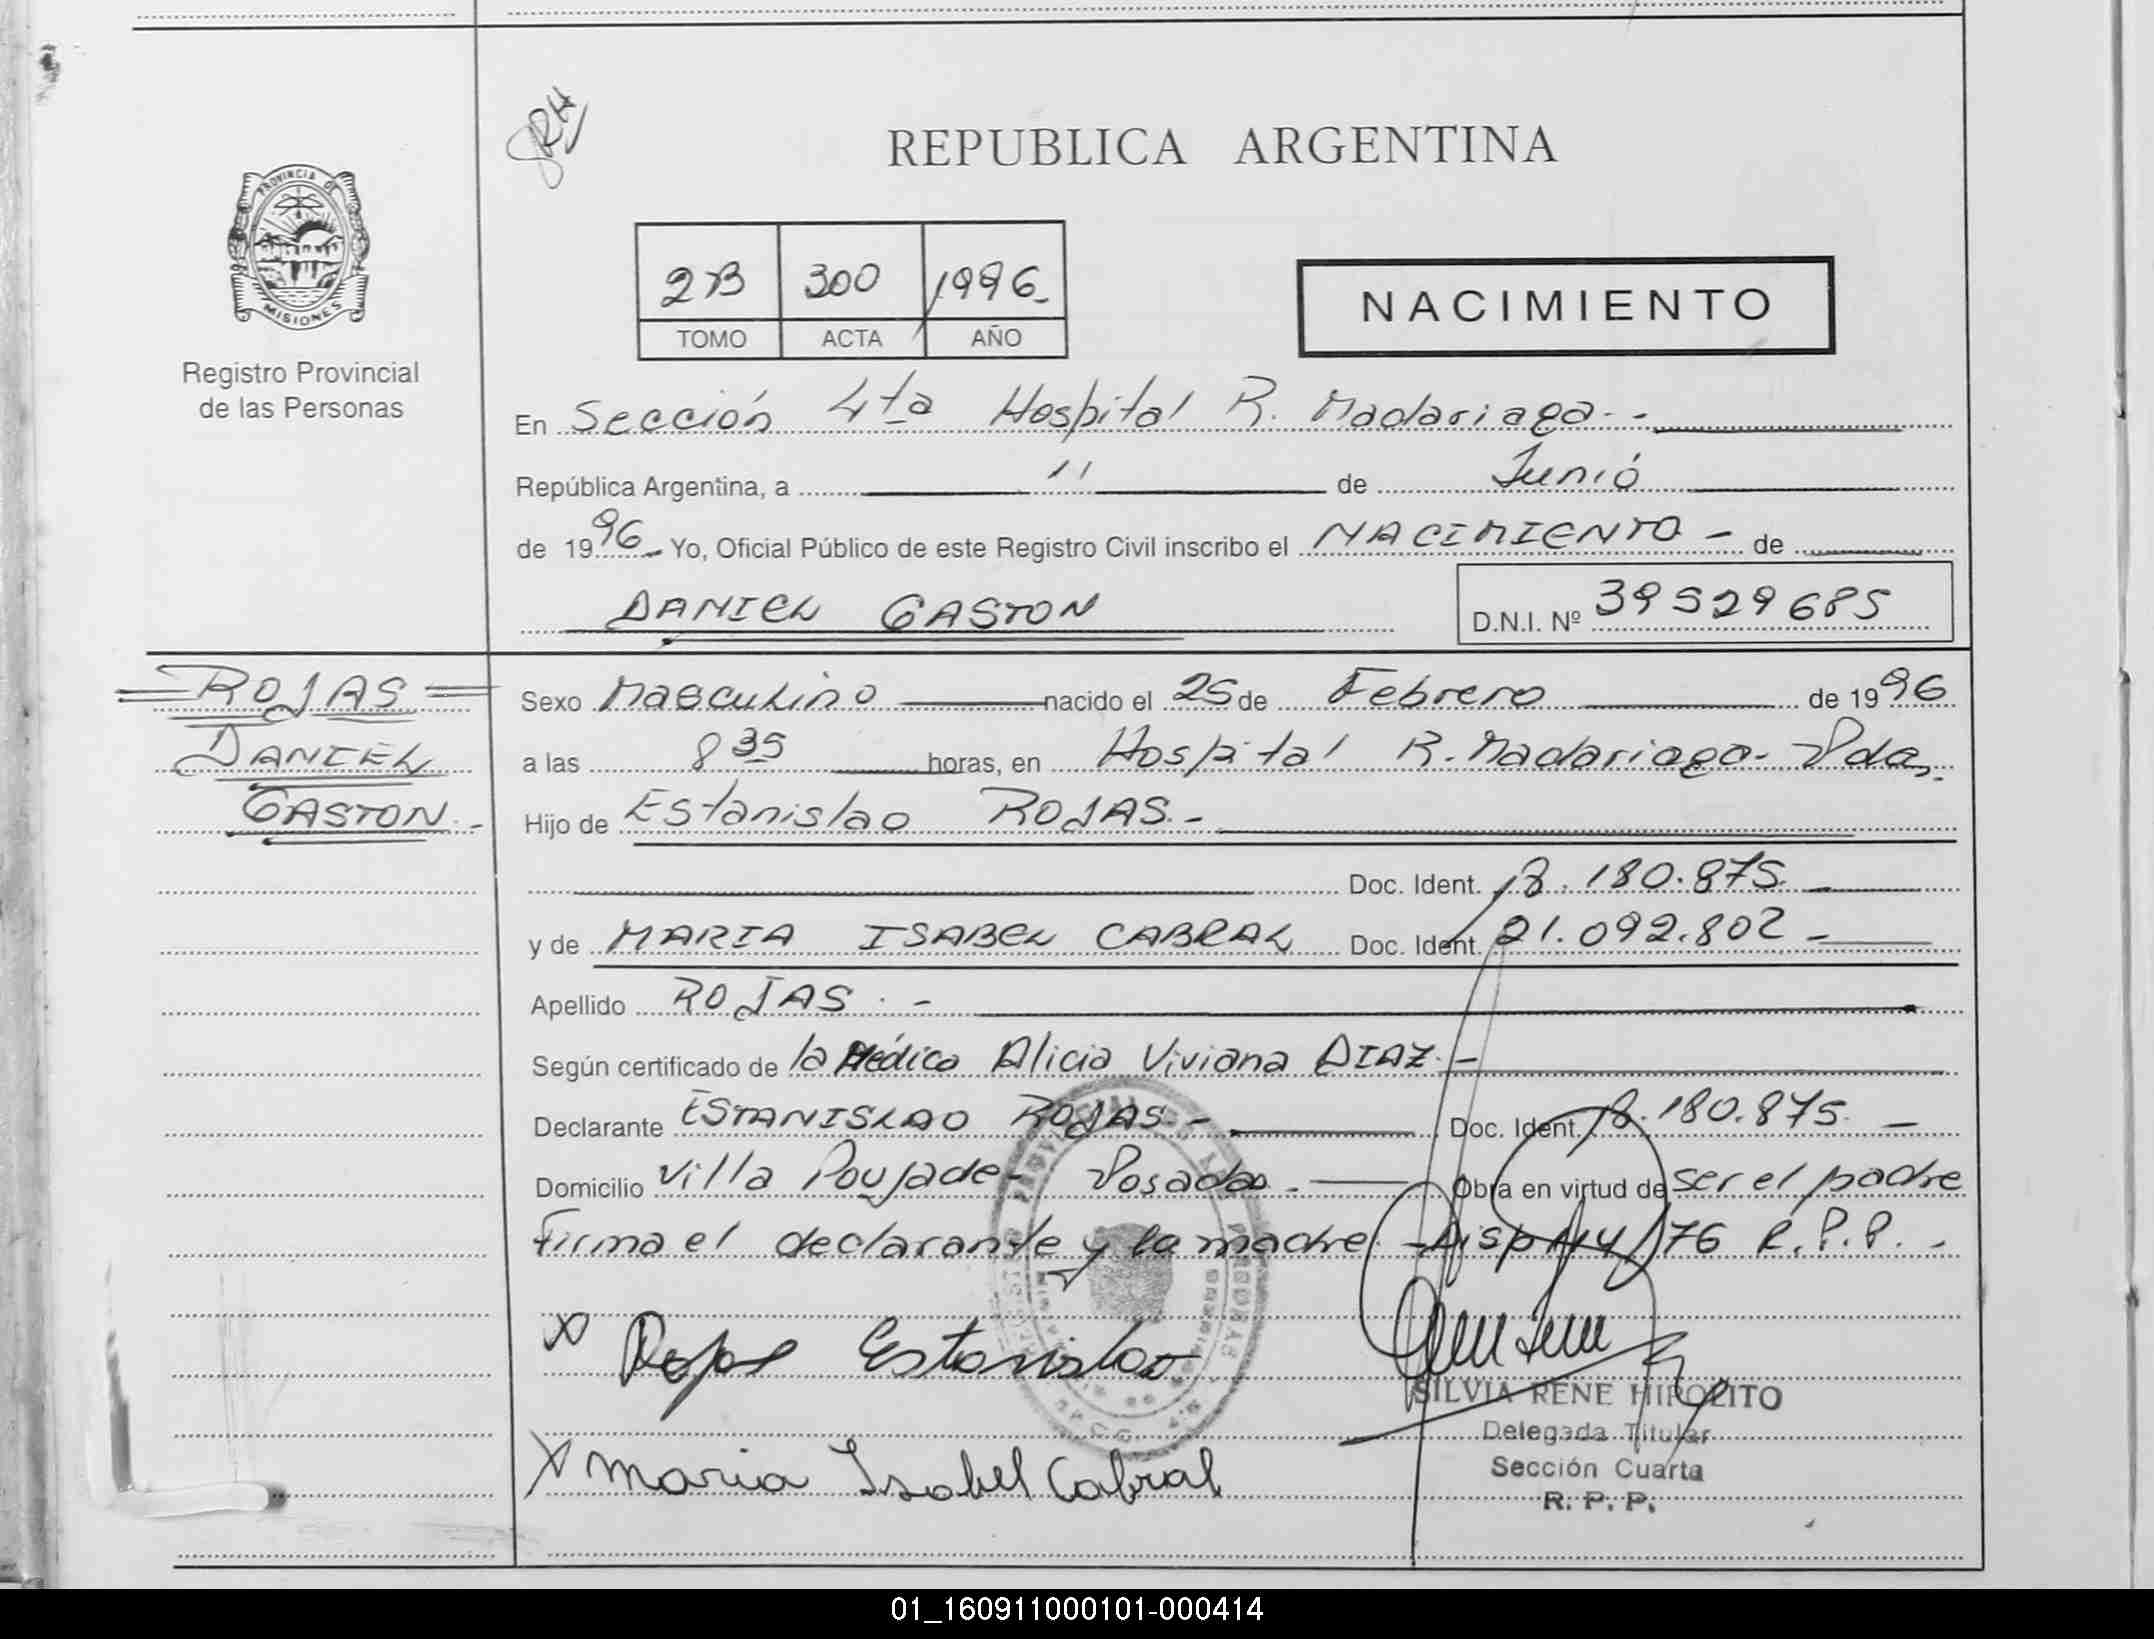 SRH
REPUBLICA ARGENTINA
PROVINCIA DE
MISIONES
Registro Provincial
de las Personas
2B 300 1996.
TOMO ACTA AÑO
NACIMIENTO
En Sección 4ta Hospital R. Madariaga.-
República Argentina, a 11 de Junio
de 1996- Yo, Oficial Público de este Registro Civil inscribo el NACIMIENTO - de
DANIEL GASTON D.N.I. Nº 39529685
ROJAS
DANIEL
GASTON.-
Sexo Masculino nacido el 25 de Febrero de 1996
a las 8 35 horas, en Hospital R. Madariaga- Pdas.
Hijo de Estanislao ROJAS.-
Doc. Ident. 18.180.875.-
y de MARIA ISABEL CABRAL Doc. Ident. 21.092.802-
Apellido ROJAS.-
Según certificado de la Médica Alicia Viviana DIAZ.-
Declarante ESTANISLAO ROJAS- Doc. Ident. 18.180.875.-
Domicilio Villa Poujade- Posadas.- Obra en virtud de ser el padre
Firma el declarante y la madre -Disp 14/76 R.P.P.-
X Rojas Estanislao
SILVIA RENE HIPOLITO
Delegada Titular
X Maria Isabel Cabral
Sección Cuarta
R. P. P.
01_160911000101-000414